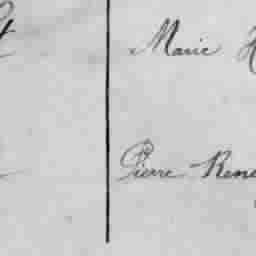 Marie H
Pierre René